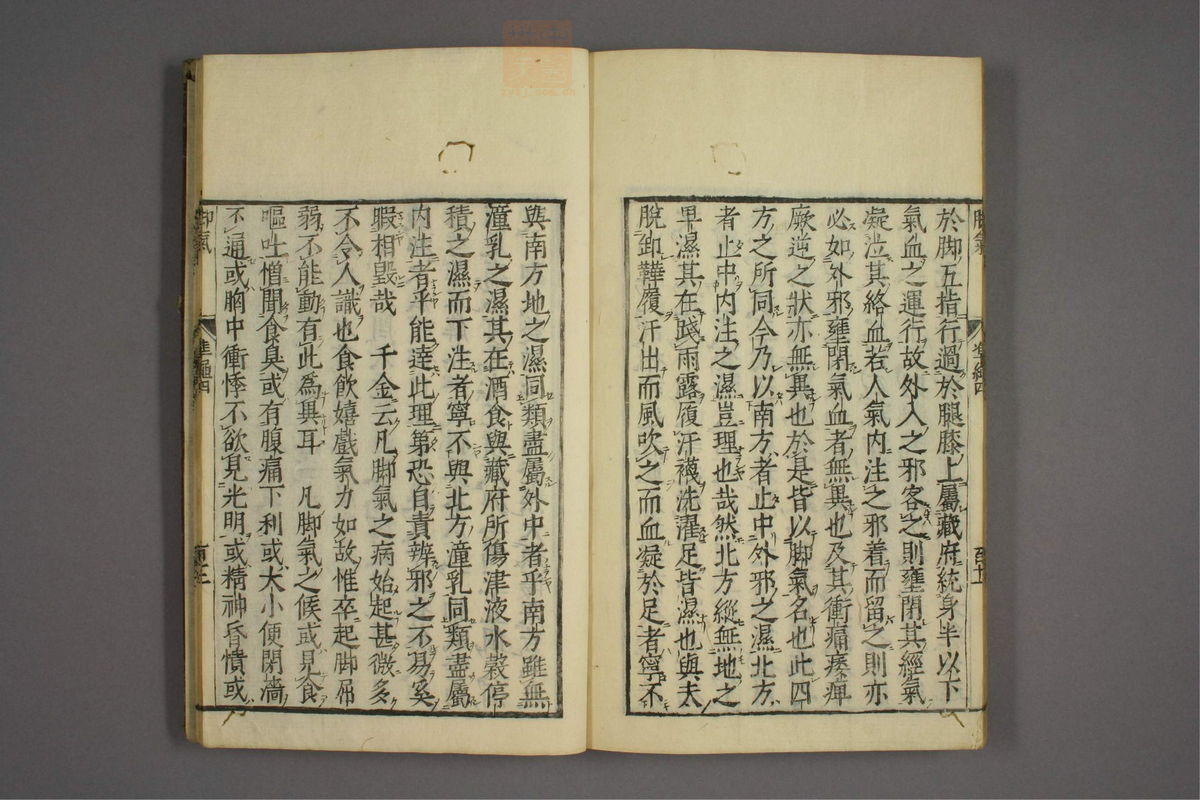 於脚五指行過於腿膝上屬藏府統身半以下
氣血之運行故外入之邪客之則壅閉其經氣
凝泣其絡血若人氣內注之邪着而留之則亦
必如外邪壅閉氣血者無異也及其衝痛痿痺
厥逆之狀亦無異也於是皆以脚氣名也此四
方之所同今乃以南方者止中外邪之濕北方
者止中內注之濕豈理也哉然北方縱無地之
卑濕其在踐雨露履汗襪洗濯足皆濕也與夫
脫卸鞾履汗出而風吹之而血凝於足者寧不
與南方地之濕同類盡屬外中者乎南方雖無
潼乳之濕其在酒食與藏府所傷津液水穀停
積之濕而下注者寧不與北方潼乳同類盡屬
內注者乎能達此理第恐自責辨邪之不易奚
暇相毀哉　千金云凡脚氣之病始起甚微多
不令人識也食飲嬉戲氣力如故惟卒起脚屈
弱不能動有此為異耳　凡脚氣之候或見食
嘔吐憎聞食臭或有腹痛下利或大小便閉濇
不通或胸中衝悸不欲見光明或精神昏憒或
脚氣
準繩四